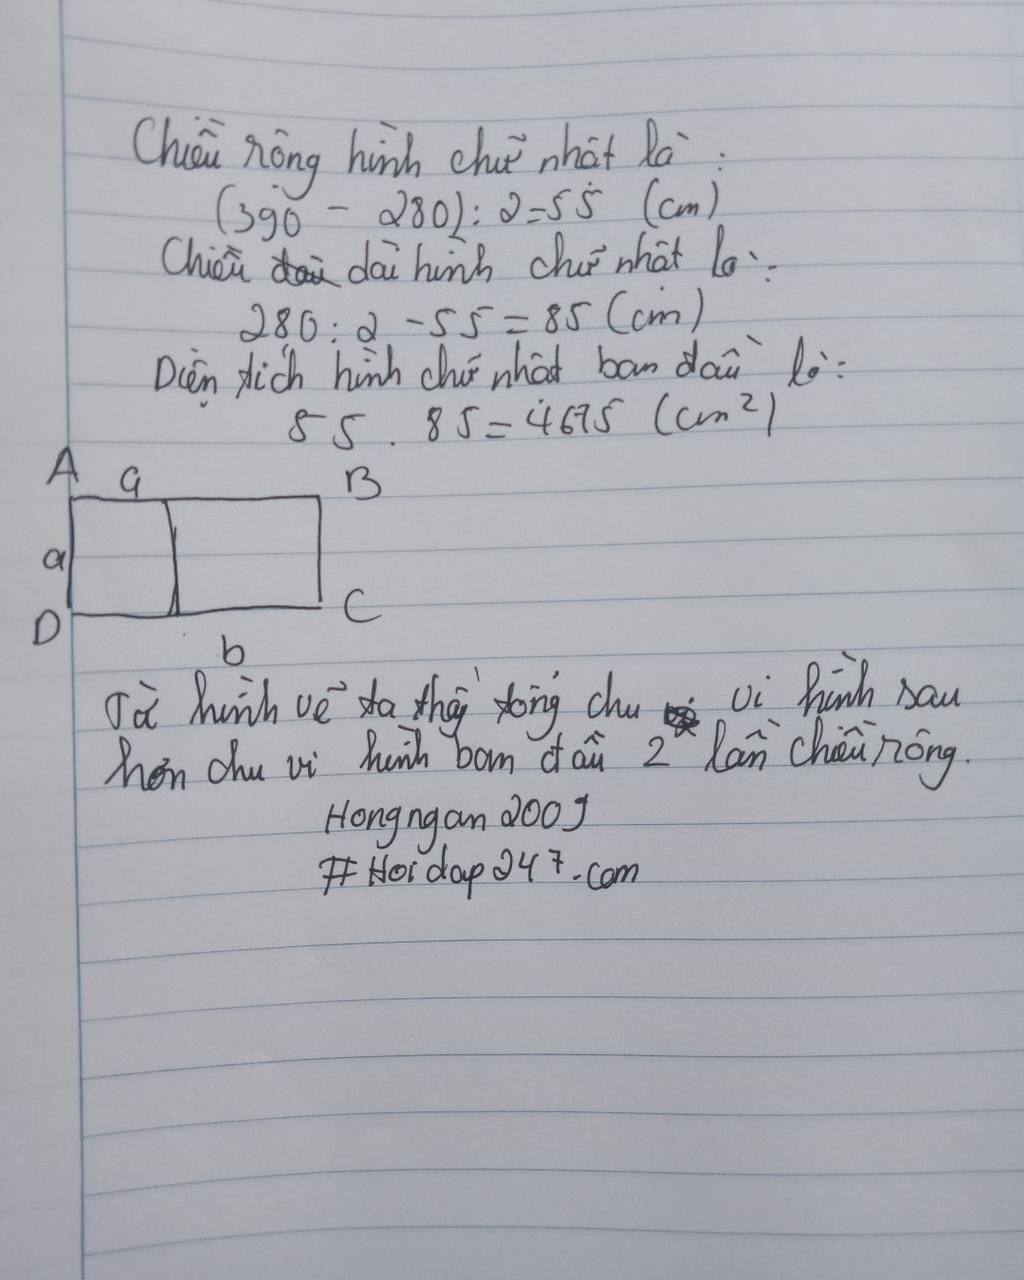 Chiều rộng hình chữ nhật là:
(390 - 280) : 2 = 55 (cm)
Chiều dài hình chữ nhật là:
280 : 2 - 55 = 85 (cm)
Diện tích hình chữ nhật ban đầu là:
55 . 85 = 4675 (cm²)
A a B
a
D C
b
Từ hình vẽ ta thấy tổng chu vi hình sau
hơn chu vi hình ban đầu 2 lần chiều rộng.
Hongngan2009
#Hoidap247.com